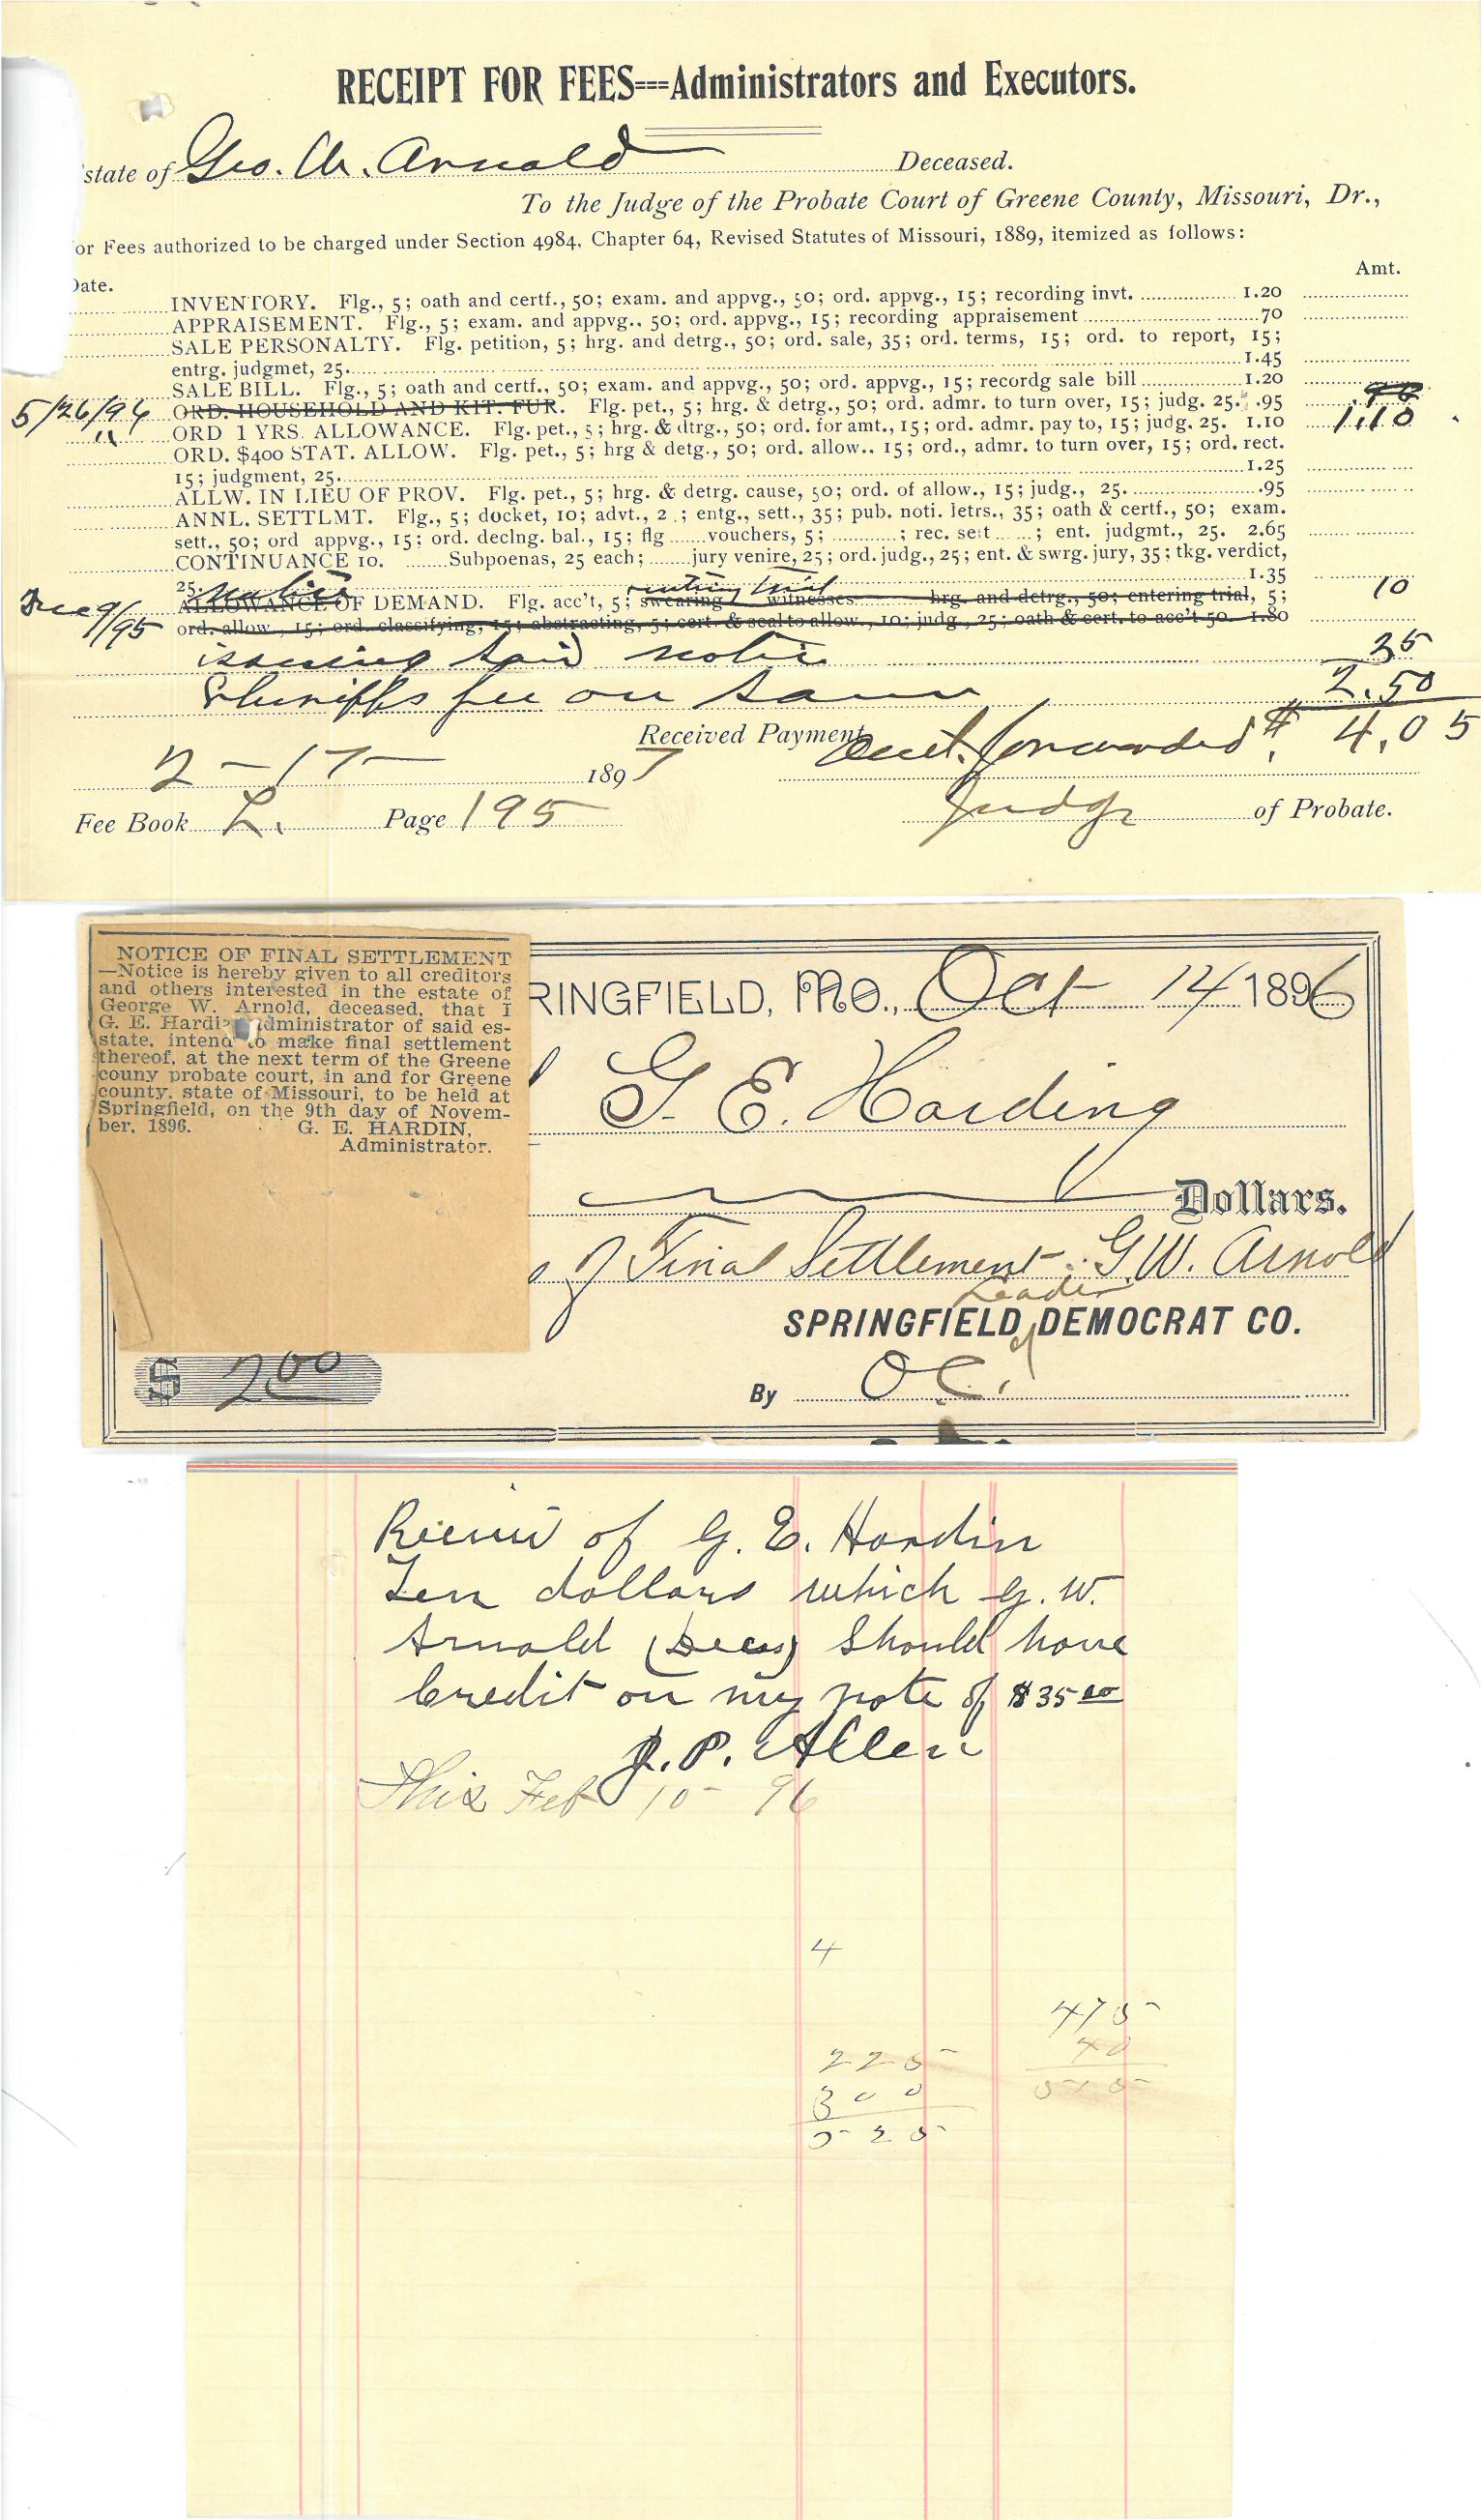 RECEIPT FOR FEES===Administrators and Executors.
state of Geo. W. Arnold Deceased.
To the Judge of the Probate Court of Greene County, Missouri, Dr.,
or Fees authorized to be charged under Section 4984, Chapter 64, Revised Statutes of Missouri, 1889, itemized as follows:
Date. Amt.
INVENTORY. Flg., 5; oath and certf., 50; exam. and appvg., 50; ord. appvg., 15; recording invt. 1.20
APPRAISEMENT. Flg., 5; exam. and appvg., 50; ord. appvg., 15; recording appraisement 70
SALE PERSONALTY. Flg. petition, 5; hrg. and detrg., 50; ord. sale, 35; ord. terms, 15; ord. to report, 15;
entrg. judgmet, 25. 1.45
SALE BILL. Flg., 5; oath and certf., 50; exam. and appvg., 50; ord. appvg., 15; recordg sale bill 1.20
5/26/94 ORD. HOUSEHOLD AND KIT. FUR. Flg. pet., 5; hrg. & detrg., 50; ord. admr. to turn over, 15; judg. 25. .95
" ORD 1 YRS. ALLOWANCE. Flg. pet., 5; hrg. & dtrg., 50; ord. for amt., 15; ord. admr. pay to, 15; judg. 25. 1.10 1.10
ORD. $400 STAT. ALLOW. Flg. pet., 5; hrg & detg., 50; ord. allow.. 15; ord., admr. to turn over, 15; ord. rect.
15; judgment, 25. 1.25
ALLW. IN LIEU OF PROV. Flg. pet., 5; hrg. & detrg. cause, 50; ord. of allow., 15; judg., 25. .95
ANNL. SETTLMT. Flg., 5; docket, 10; advt., 2 .; entg., sett., 35; pub. noti. letrs., 35; oath & certf., 50; exam.
sett., 50; ord appvg., 15; ord. declng. bal., 15; flg ......vouchers, 5; ..........; rec. sett ....; ent. judgmt., 25. 2.65
CONTINUANCE 10. .......Subpoenas, 25 each; ......jury venire, 25; ord. judg., 25; ent. & swrg. jury, 35; tkg. verdict,
25. 1.35
notice entering trial
Dec 9/95 ALLOWANCE OF DEMAND. Flg. acc't, 5; swearing witnesses hrg. and detrg., 50; entering trial, 5; 10
ord. allow., 15; ord. classifying, 15; abstracting, 5; cert. & seal to allow., 10; judg., 25; oath & cert. to acc't 50. 1.80
issuing said notice 35
Sheriffs fee on same 2.50
Received Payment amt. forwarded $ 4.05
2-17- 1897
Judge of Probate.
Fee Book L. Page 195
NOTICE OF FINAL SETTLEMENT
—Notice is hereby given to all creditors
and others interested in the estate of
George W. Arnold, deceased, that I
G. E. Hardi administrator of said es-
state, intend to make final settlement
thereof, at the next term of the Greene
couny probate court, in and for Greene
county, state of Missouri, to be held at
Springfield, on the 9th day of Novem-
ber, 1896. G. E. HARDIN,
Administrator.
RINGFIELD, MO., Oct 14 1896
G. E. Harding
Dollars.
of Final Settlement. G.W. Arnold
Leader
SPRINGFIELD DEMOCRAT CO.
$ 2.00
By O.C.
Receive of G. E. Hardin
Ten dollars which G. W.
Arnold (Decs) should have
Credit on my note of $35.00
J. P. Allen
This Feb 10 - 96
4
475
40
515
225
300
525